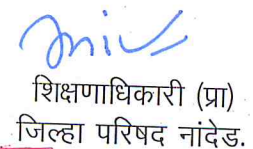 शिक्षणाधिकारी (प्रा)
जिल्हा परिषद नांदेड.